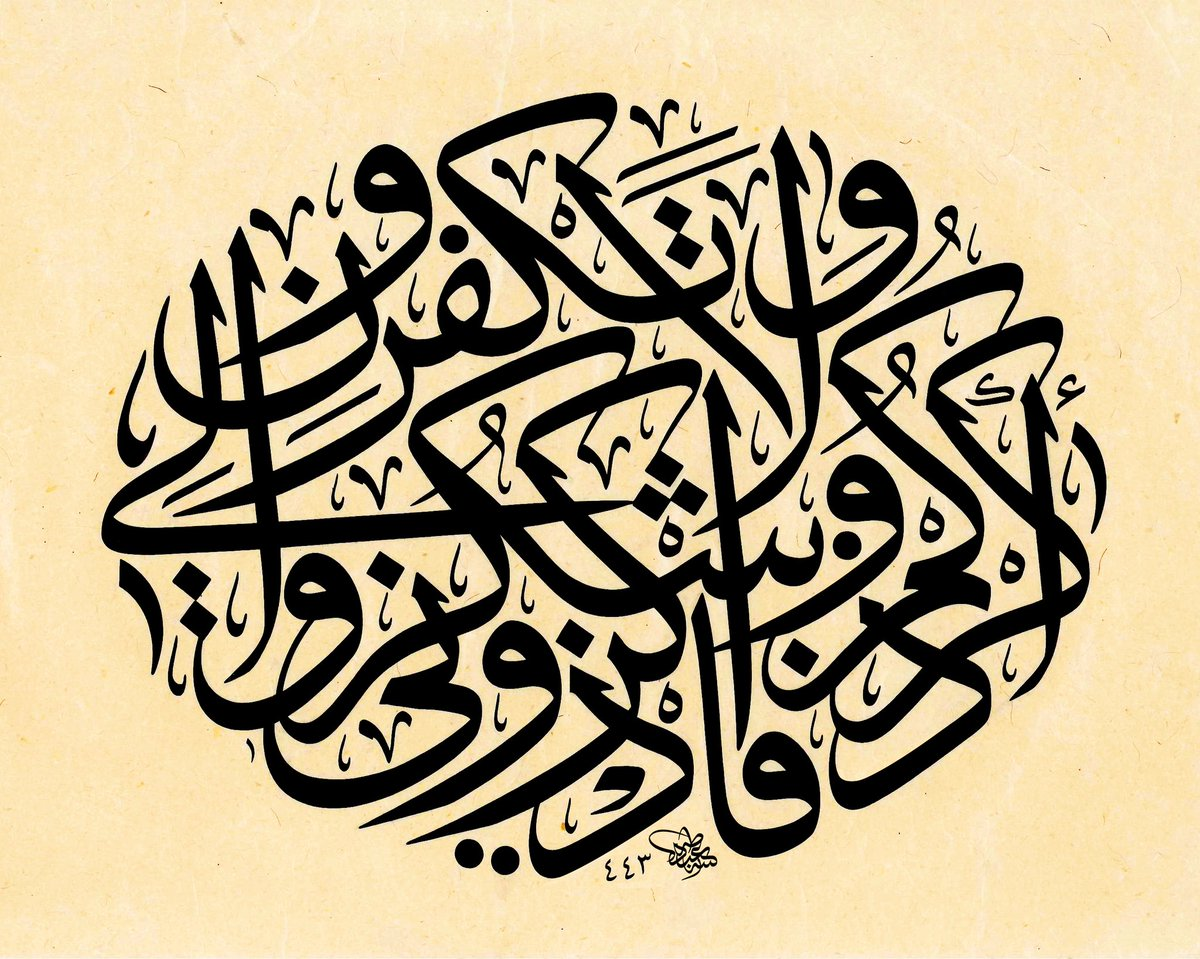 فَاذْكُرُونِي أَذْكُرْكُمْ وَاشْكُرُوا لِي وَلَا تَكْفُرُونِ
٤٤٣